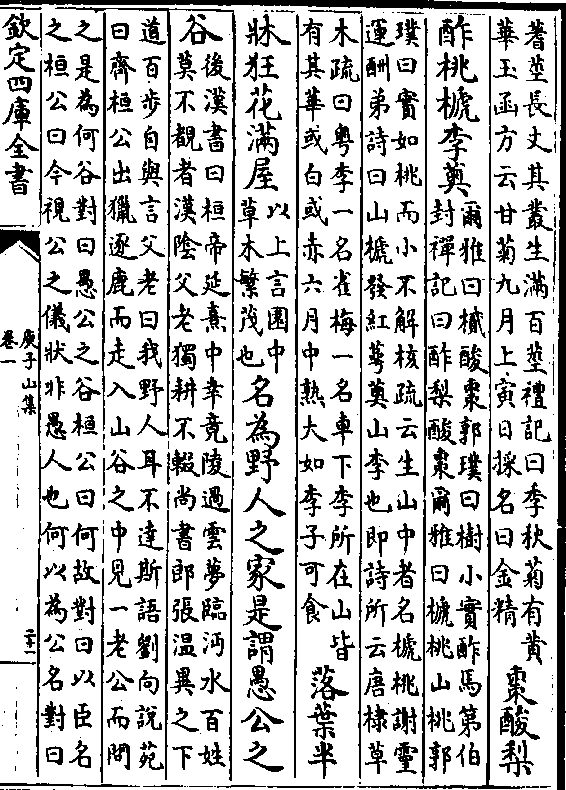 蓍莖長丈其叢生滿百莖禮記曰季秋菊有黃
華玉函方云甘菊九月上寅日採名曰金精
棗酸梨
酢桃榹李薁
爾雅曰樲酸棗郭璞曰樹小實酢馬第伯
封禪記曰酢梨酸棗爾雅曰榹桃山桃郭
璞曰實如桃而小不解核疏云生山中者名榹桃謝靈
運酬弟詩曰山榹發紅萼薁山李也即詩所云唐棣草
木疏曰粤李一名雀梅一名車下李所在山皆
有其華或白或赤六月中熟大如李子可食
落葉半
牀狂花滿屋
以上言園中
草木繁茂也
名為野人之家是謂愚公之
谷
後漢書曰桓帝延熹中幸竟陵過雲夢臨沔水百姓
莫不觀者漢陰父老獨耕不輟尚書郎張温異之下
道百步自與言父老曰我野人耳不達斯語劉向說苑
曰齊桓公出獵逐鹿而走入山谷之中見一老公而問
之是為何谷對曰愚公之谷桓公曰何故對曰以臣名
之桓公曰今視公之儀狀非愚人也何以為公名對曰
欽定四庫全書
庾子山集
卷一